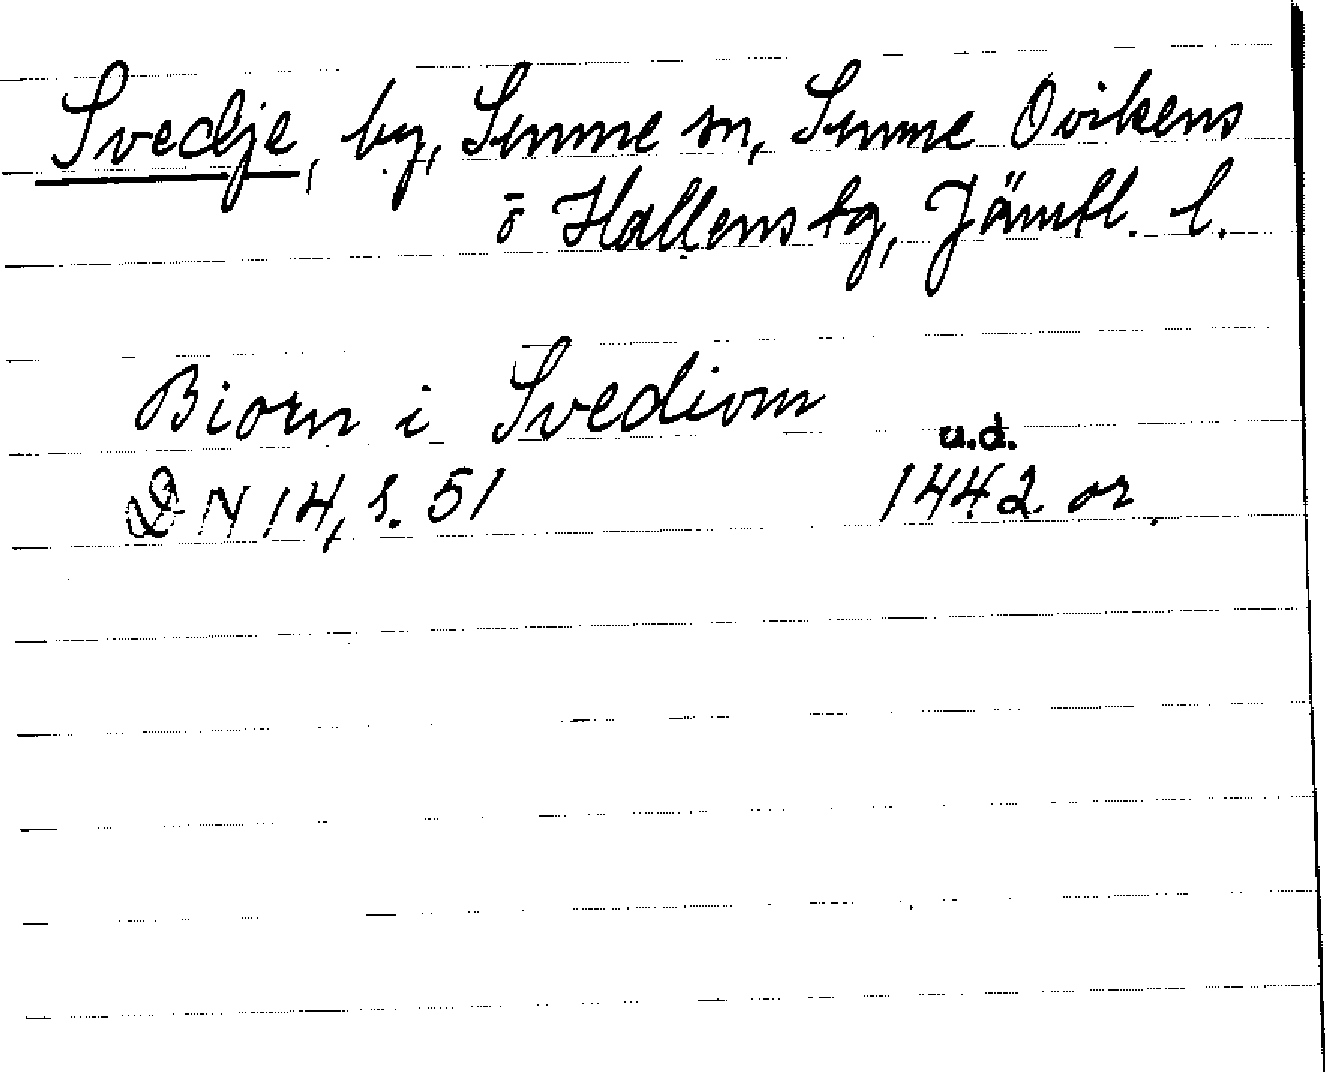 Svedje, by, Sunne sn, Sunne Ovikens
o Hallens tg, Jämtl. l.
Biorn i Svediom
u.d.
DN 14, s. 51 1442 or.